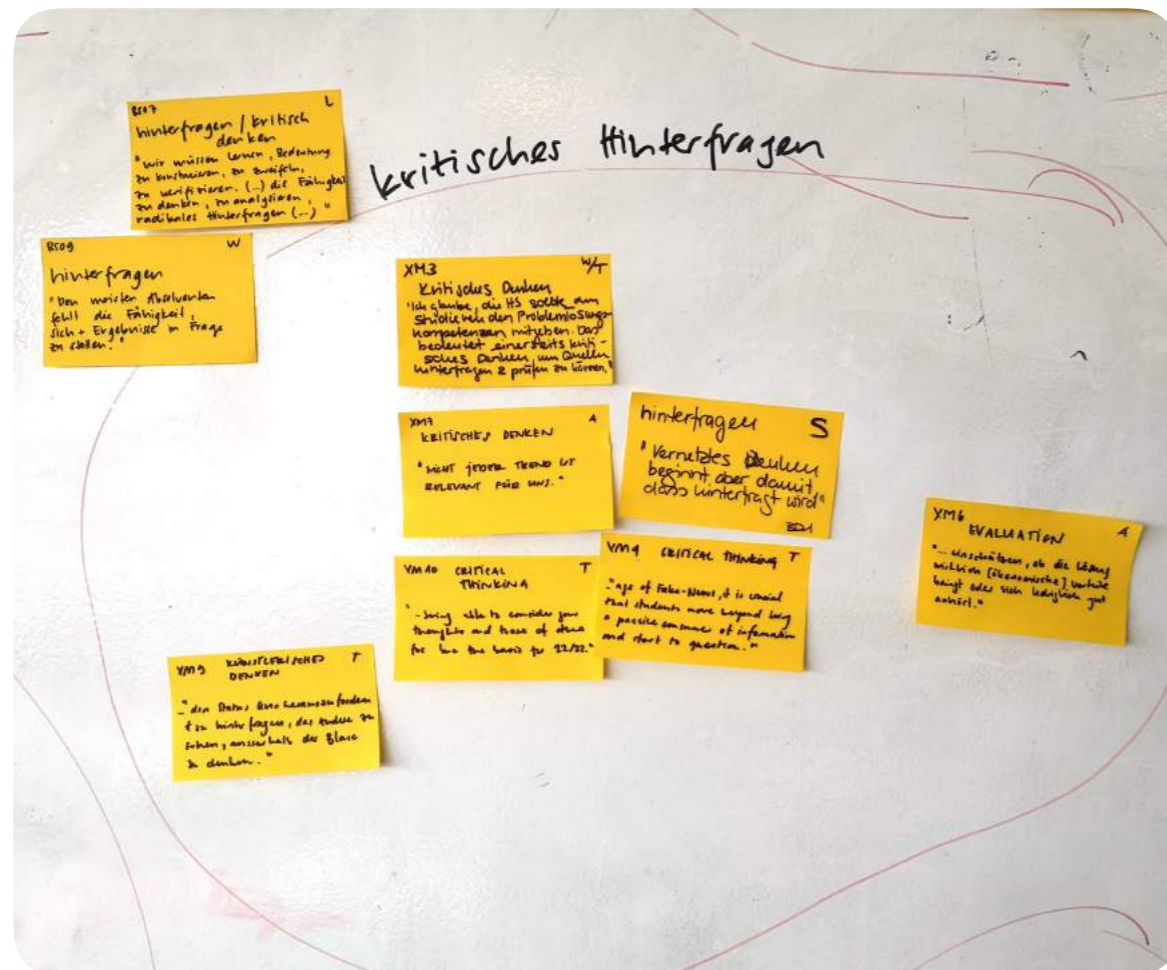 kritisches Hinterfragen
RS07 L
hinterfragen / kritisch
denken
"Wir müssen lernen, Bedeutung
zu konstruieren, zu zweifeln,
zu verifizieren. (...) die Fähigkeit
zu denken, zu analysieren,
radikales Hinterfragen (...)"
RS09 W
hinterfragen
"Den meisten Absolventen
fehlt die Fähigkeit,
sich + Ergebnisse in Frage
zu stellen."
XM3 W/T
Kritisches Denken
"Ich glaube, die HS sollte den
Studieren den Problemlösungs-
kompetenzen mitgeben. Das
bedeutet einerseits kriti-
sches Denken, um Quellen
hinterfragen & prüfen zu können."
XM7 A
KRITISCHES DENKEN
"NICHT JEDER TREND IST
RELEVANT FÜR UNS."
hinterfragen S
"Vernetztes Denken
beginnt aber damit,
dass hinterfragt wird"
BD1
XM6 A
EVALUATION
"... einschätzen, ob die Lösung
wirklich [ökonomische] Vorteile
bringt oder sich lediglich gut
anhört."
VM10 CRITICAL T
THINKING
"- being able to consider your
thoughts and those of others
the basis for
VM4 CRITICAL THINKING T
"age of Fake-News, it is crucial
that students move beyond being
a passive consumer of information
and start to question."
VM9 KÜNSTLERISCHES T
DENKEN
"den Status Quo herauszufordern
+ zu hinterfragen, das Andere zu
sehen, ausserhalb der Blase
zu denken."